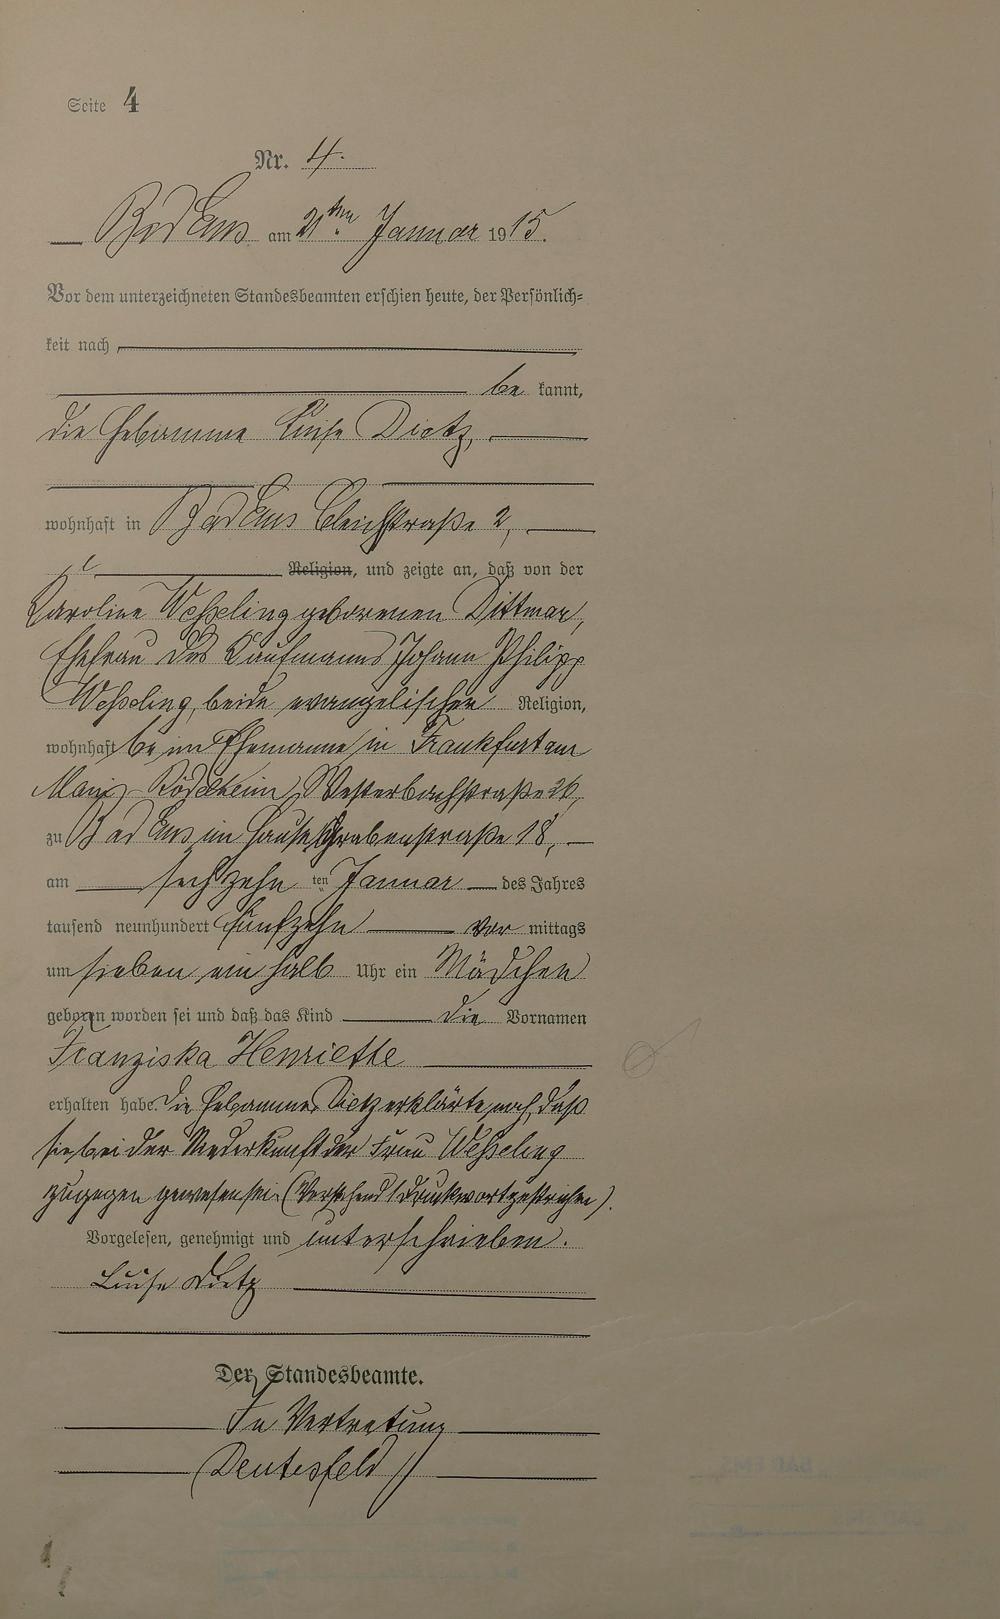 Seite 4
Nr. 4.
Bad Ems am 21ten Januar 1915.
Vor dem unterzeichneten Standesbeamten erschien heute, der Persönlich-
keit nach
be kannt,
die Hebamme Luise Dietz,
wohnhaft in Bad Ems Bleichstraße 2,
Religion, und zeigte an, daß von der
Karoline Wesseling geborenen Dittmar,
Ehefrau des Kaufmanns Johann Philipp
Wesseling, beide evangelischer Religion,
wohnhaft beim Ehemanne in Frankfurt am
Main-Rödelheim, Westerbachstraße 26,
zu Bad Ems im Hause Grabenstraße 18,
am sechzehn ten Januar des Jahres
tausend neunhundert fünfzehn vor mittags
um sieben ein halb Uhr ein Mädchen
geboren worden sei und daß das Kind die Vornamen
Franziska Henriette
erhalten habe. Die Hebamme Dietz erklärte noch, daß
sie bei der Niederkunft der Frau Wesseling
zugegen gewesen sei. (Vorstehend 1 Druckwort gestrichen).
Vorgelesen, genehmigt und unterschrieben.
Luise Dietz
Der Standesbeamte.
In Vertretung